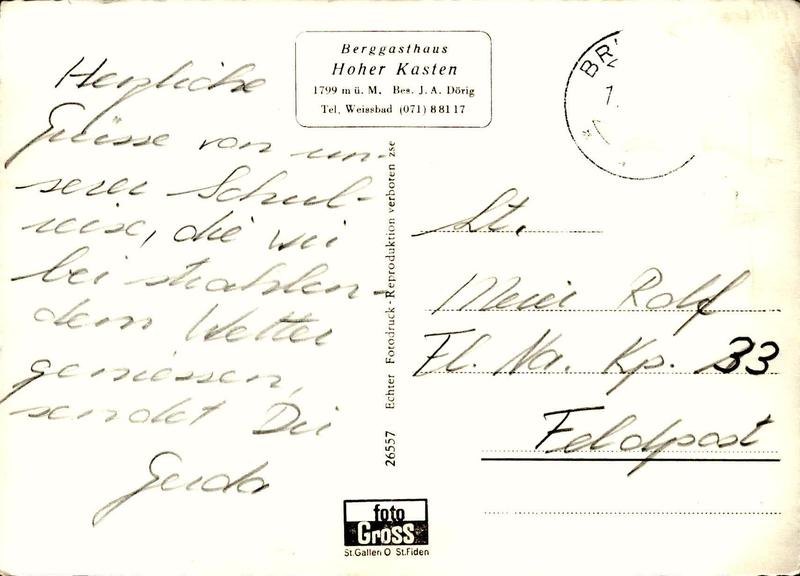 Berggasthaus
Hoher Kasten
1799 m ü. M. Bes. J. A. Dörig
Tel. Weissbad (071) 8 81 17
Herzliche
Grüsse von un-
serer Schul-
reise, die wir
bei strahlen-
dem Wetter
geniessen,
sendet Dir
Gerda
26557 Echter Fotodruck - Reproduktion verboten zse
BR
Lt.
Meier Rolf
Fl. Na. Kp. 33
Feldpost
foto
Gross
St.Gallen O St.Fiden